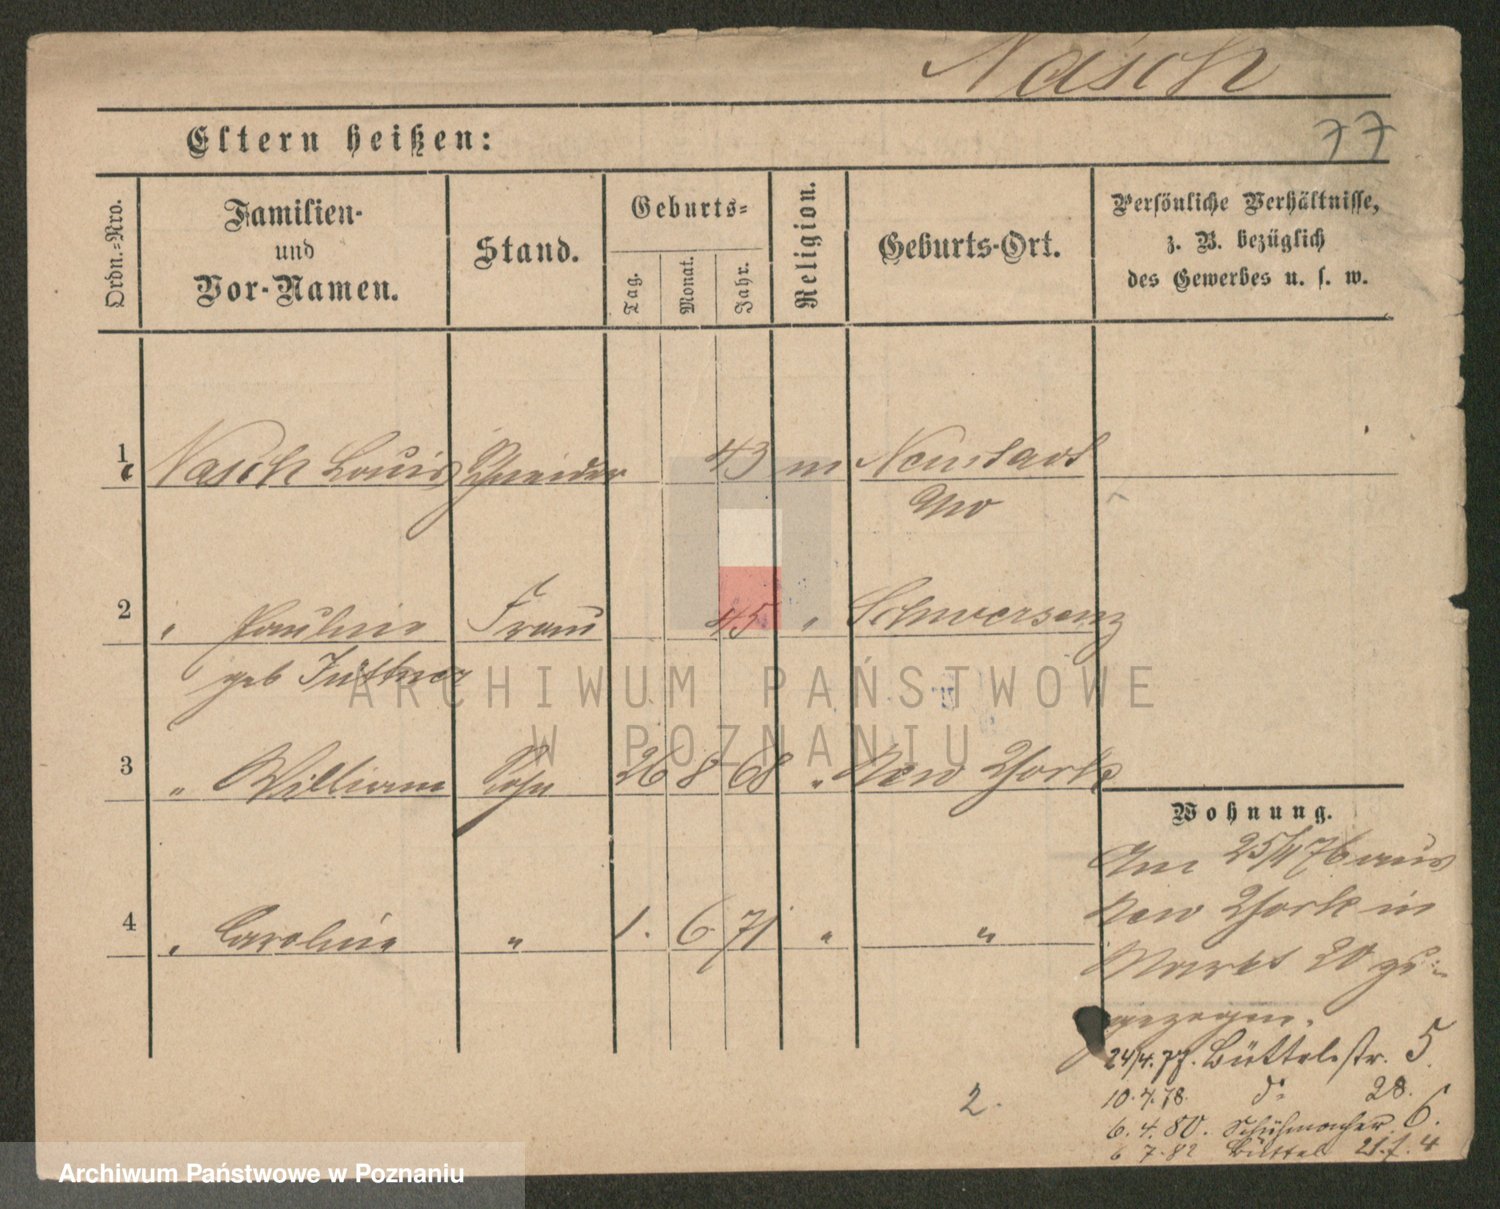 Nasch
77
Eltern heißen:
Ordn.-Nro.
Familien-
und
Vor-Namen.
Stand.
Geburts-
Tag.
Monat.
Jahr.
Religion.
Geburts-Ort.
Persönliche Verhältnisse,
z. B. bezüglich
des Gewerbes u. s. w.
1 Nasch Louis Schneider 43 m Neustadt
2 " Pauline Frau 45 " Schwersenz
geb
3 " William Sohn 26 8 68 " New York
4 " Caroline " 1. 6 71 " "
Wohnung.
Am 25/4 76 aus
New York in
Markt 20 zu-
gezogen.
24/4.77. Büttelstr. 5.
10.4.78. do 28.
6.4.80. Schuhmacher 6.
6 7.82 Büttel 21. 4
2.
ARCHIWUM PAŃSTWOWE
W POZNANIU
Archiwum Państwowe w Poznaniu